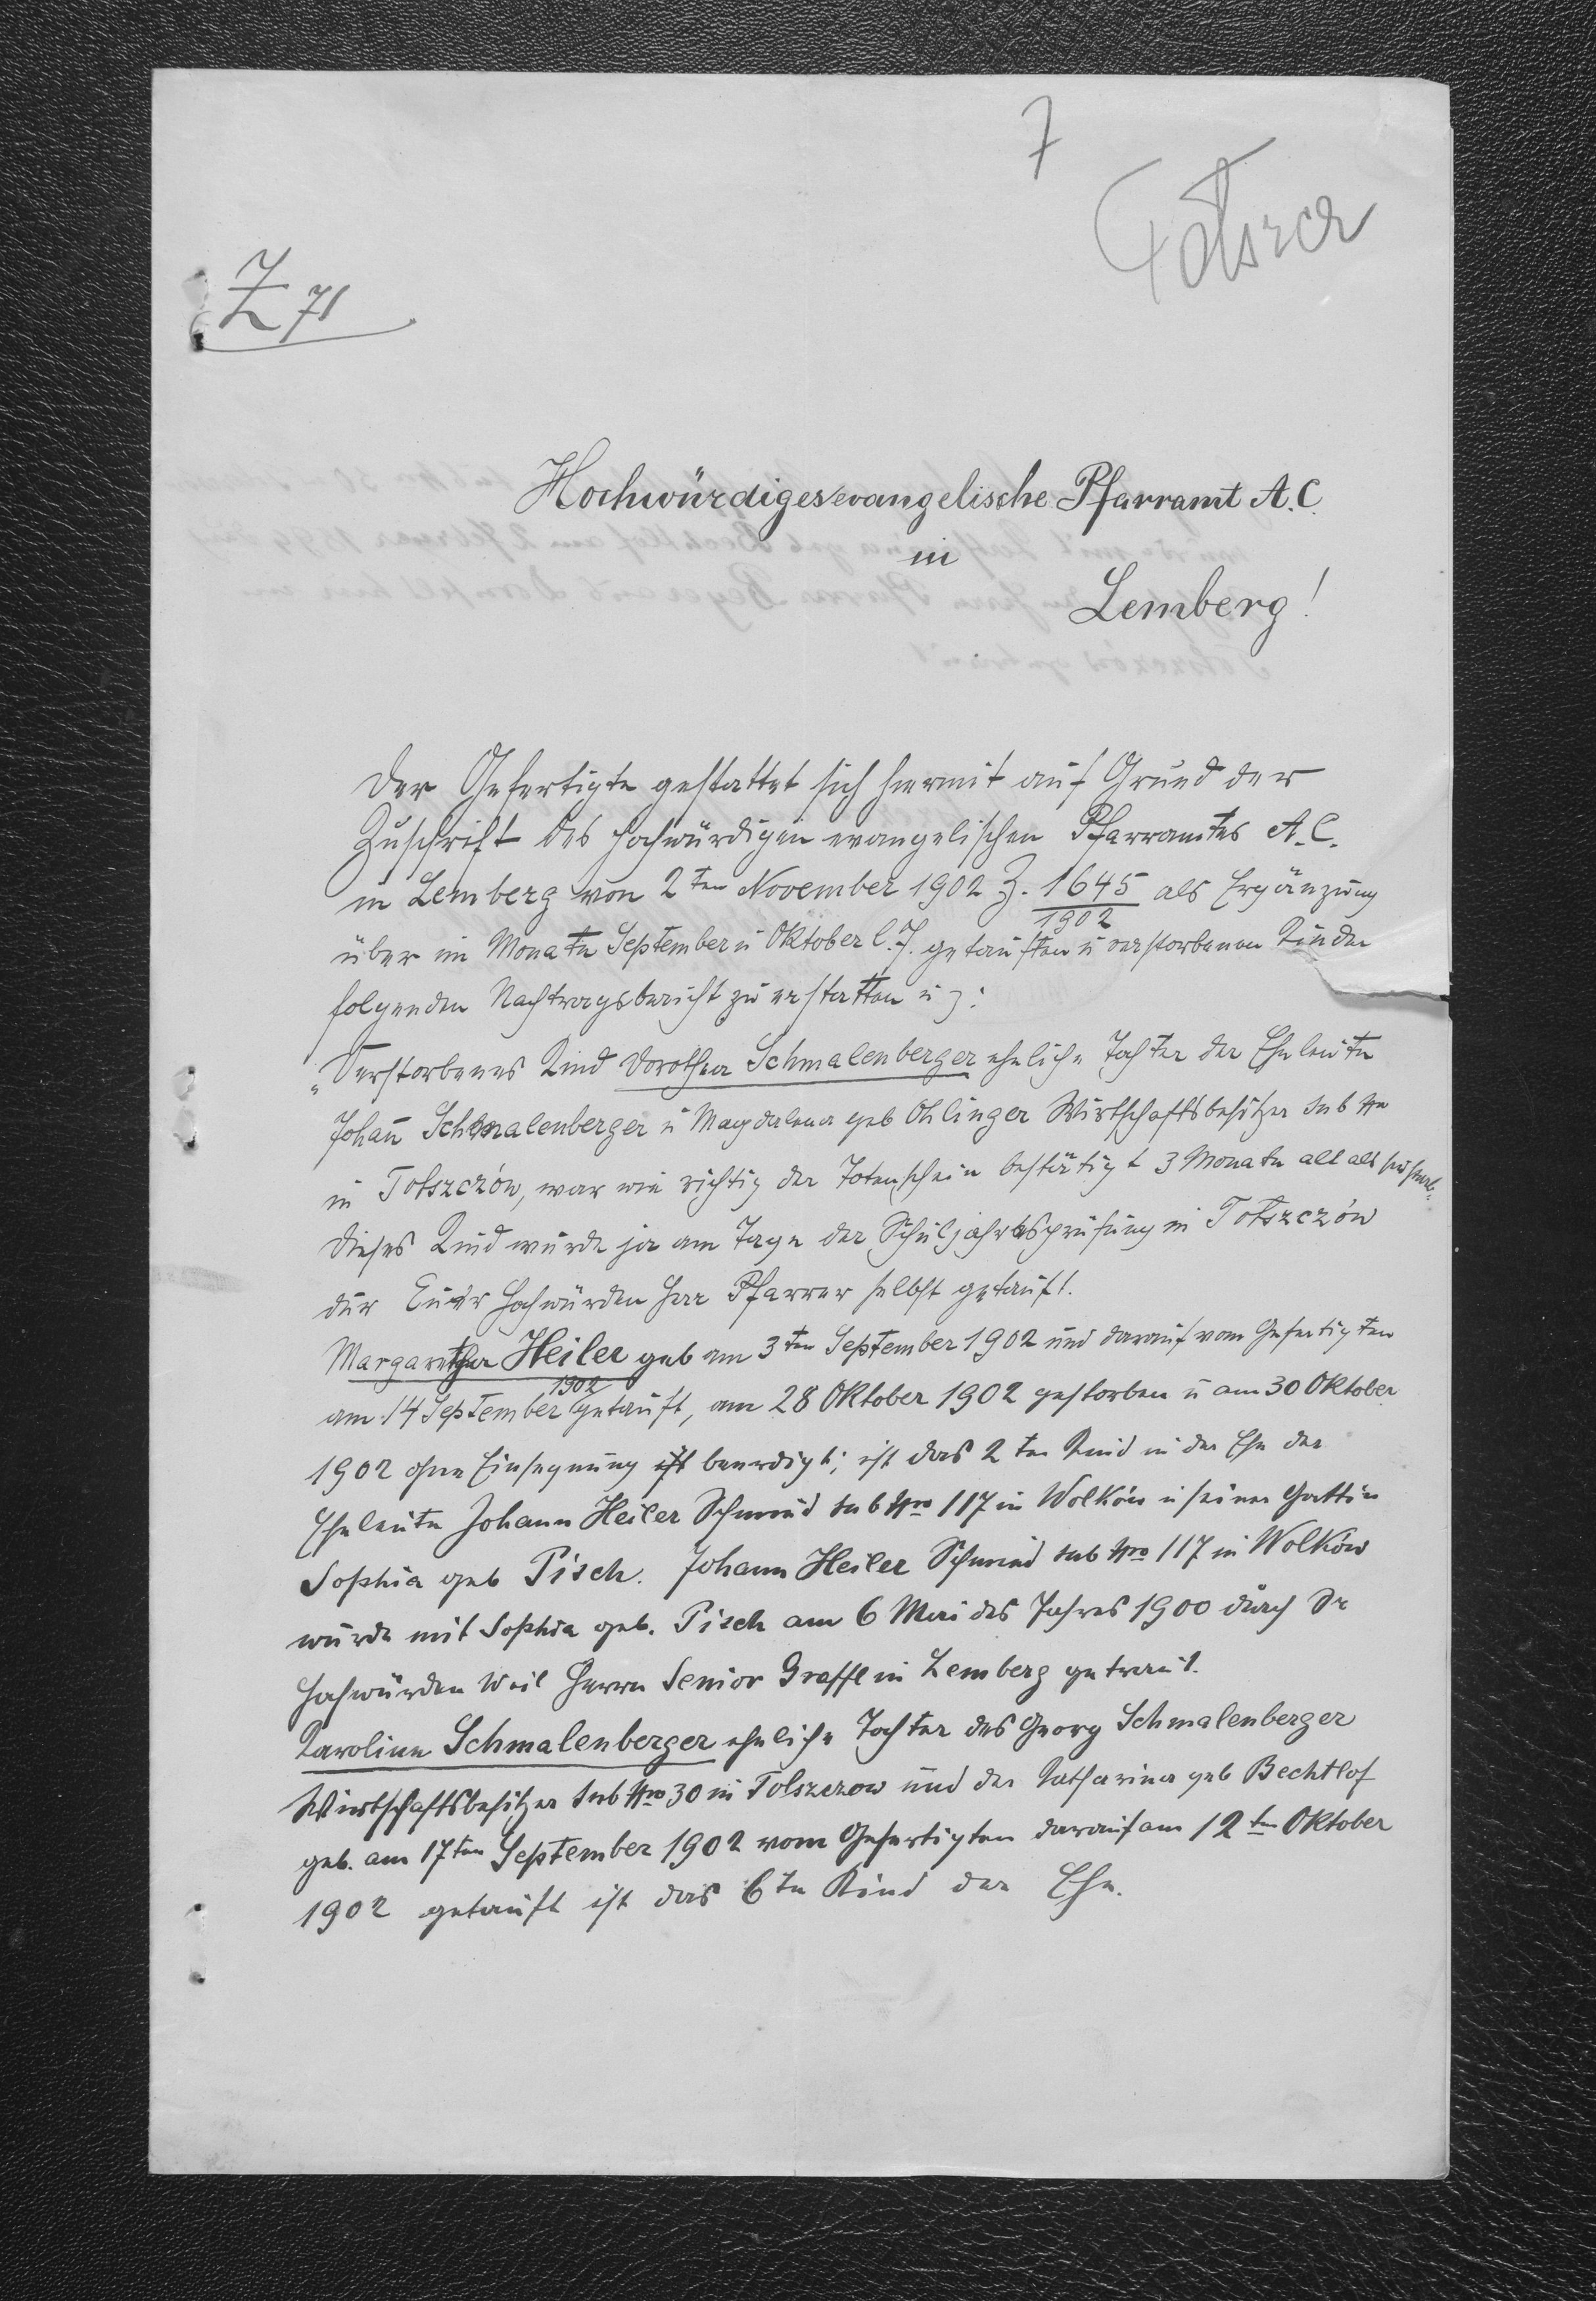 7
Z 71
Hochwürdiges evangelische Pfarramt A. C.
in
Lemberg!
Der Gefertigte gestattet sich hiermit auf Grund der
Zuschrift des hochwürdigen evangelischen Pfarramtes A. C.
in Lemberg von 2ten November 1902 Z. 1645/1902 als Ergänzung
über im Monate September u Oktober l. J. getauften u verstorbenen Kinder
folgenden Nachtragsbericht zu erstatten u z:
„Verstorbenes Kind Dorothea Schmalenberger eheliche Tochter der Eheleute
Johann Schmalenberger u Magdalena geb Ohlinger Wirtschaftsbesitzer sub
in Tołszczów, war wie richtig der Totenschein bestätigt 3 Monate alt als
Dieses Kind wurde ja am Tage der Schuljahresprüfung in Tołszczów
dur Euer Hochwürden Herr Pfarrer selbst getauft.
Margaretha Heiler geb am 3ten September 1902 und darauf vom Gefertigten
am 14 September 1902 getauft, am 28 Oktober 1902 gestorben u am 30 Oktober
1902 ohne Einsegnung ist beerdigt; ist das 2te Kind in der Ehe der
Eheleute Johann Heiler Schmied sub Nro 117 in Wolków u seiner Gattin
Sophia geb Pisch. Johann Heiler Schmied sub Nro 117 in Wolków
wurde mit Sophia geb. Pisch am 6 Mai des Jahres 1900 durch Sr
Hochwürden Weil Herrn Senior Graffl in Lemberg getraut.
Karoline Schmalenberger eheliche Tochter des Georg Schmalenberger
Wirtschaftsbesitzer sub Nro 30 in Tolszczow und der Katharina geb Bechtlof
geb. am 17ten September 1902 vom Gefertigten darauf am 12ten Oktober
1902 getauft ist das 6te Kind der Ehe.